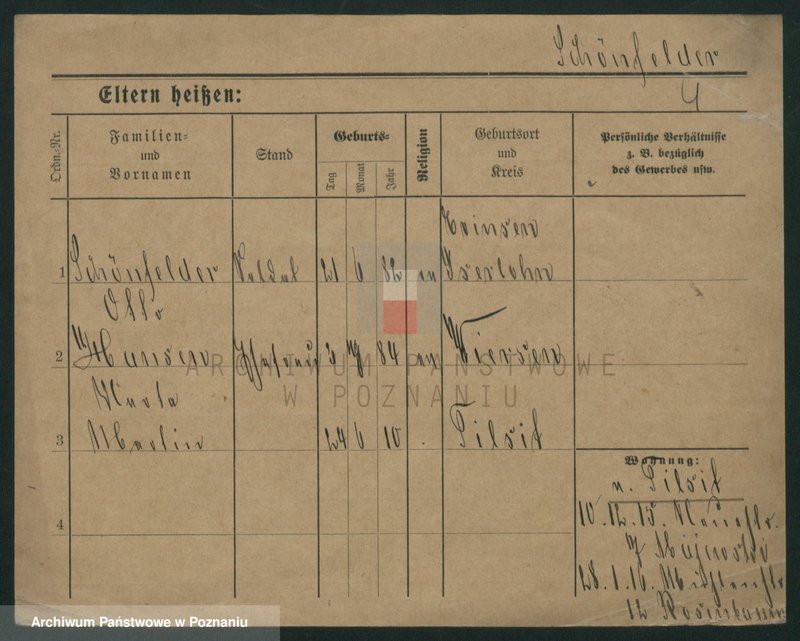 Schönfelder
4
Eltern heißen:
Ordn.-Nr.
Familien-
und
Vornamen
Stand
Geburts-
Tag
Monat
Jahr
Religion
Geburtsort
und
Kreis
Persönliche Verhältnisse
z. B. bezüglich
des Gewerbes usw.
1 Schönfelder Soldat 21 6 82 ev Iserlohn
Otto
2 Hansen Ehefrau 3 84 ev Viersen
3 24 6 10 Tilsit
4
Wohnung:
n. Tilsit
10.12.15.
7
28.1.16.
12
ARCHIWUM PAŃSTWOWE
W POZNANIU
Archiwum Państwowe w Poznaniu